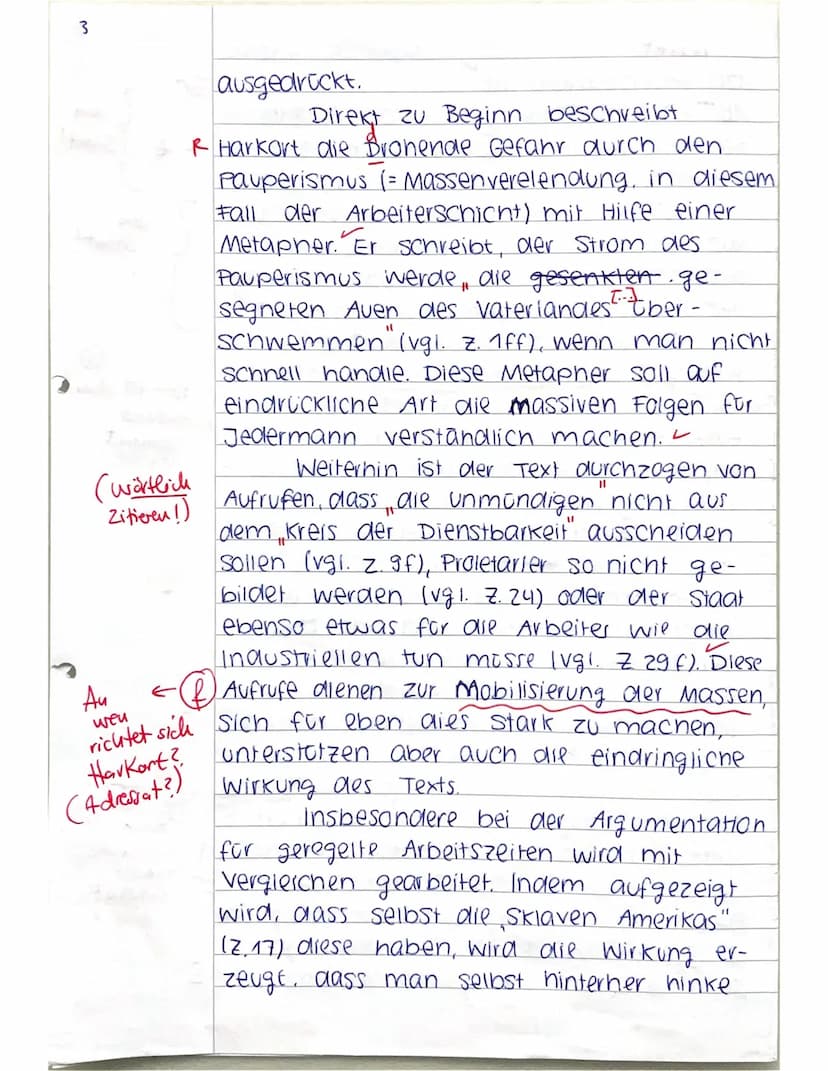 3
ausgedrückt.
Direkt zu Beginn beschreibt
R Harkort die Drohende Gefahr durch den
d
Pauperismus (= Massenverelendung, in diesem
Fall der Arbeiterschicht) mit Hilfe einer
Metapher. Er schreibt, der Strom des
Pauperismus werde „die gesenkten ge-
segneten Auen des Vaterlandes [...] über-
schwemmen" (vgl. Z. 1ff), wenn man nicht
schnell handle. Diese Metapher soll auf
eindrückliche Art die massiven Folgen für
Jedermann verständlich machen.
Weiterhin ist der Text durchzogen von
(wörtlich
zitieren!)
Aufrufen, dass „die unmündigen" nicht aus
dem „Kreis der Dienstbarkeit" ausscheiden
sollen (vgl. Z. 9f), Proletarier so nicht ge-
bildet werden (vgl. Z. 24) oder der Staat
ebenso etwas für die Arbeiter wie die
Industriellen tun müsse (vgl. Z 29f). Diese
Aufrufe dienen zur Mobilisierung der Massen,
← f
An
wen
richtet sich
Harkort?
(Adressat?)
sich für eben dies stark zu machen,
unterstützen aber auch die eindringliche
Wirkung des Texts.
Insbesondere bei der Argumentation
für geregelte Arbeitszeiten wird mit
Vergleichen gearbeitet. Indem aufgezeigt
wird, dass selbst die „Sklaven Amerikas"
(Z.17) diese haben, wird die Wirkung er-
zeugt, dass man selbst hinterher hinke